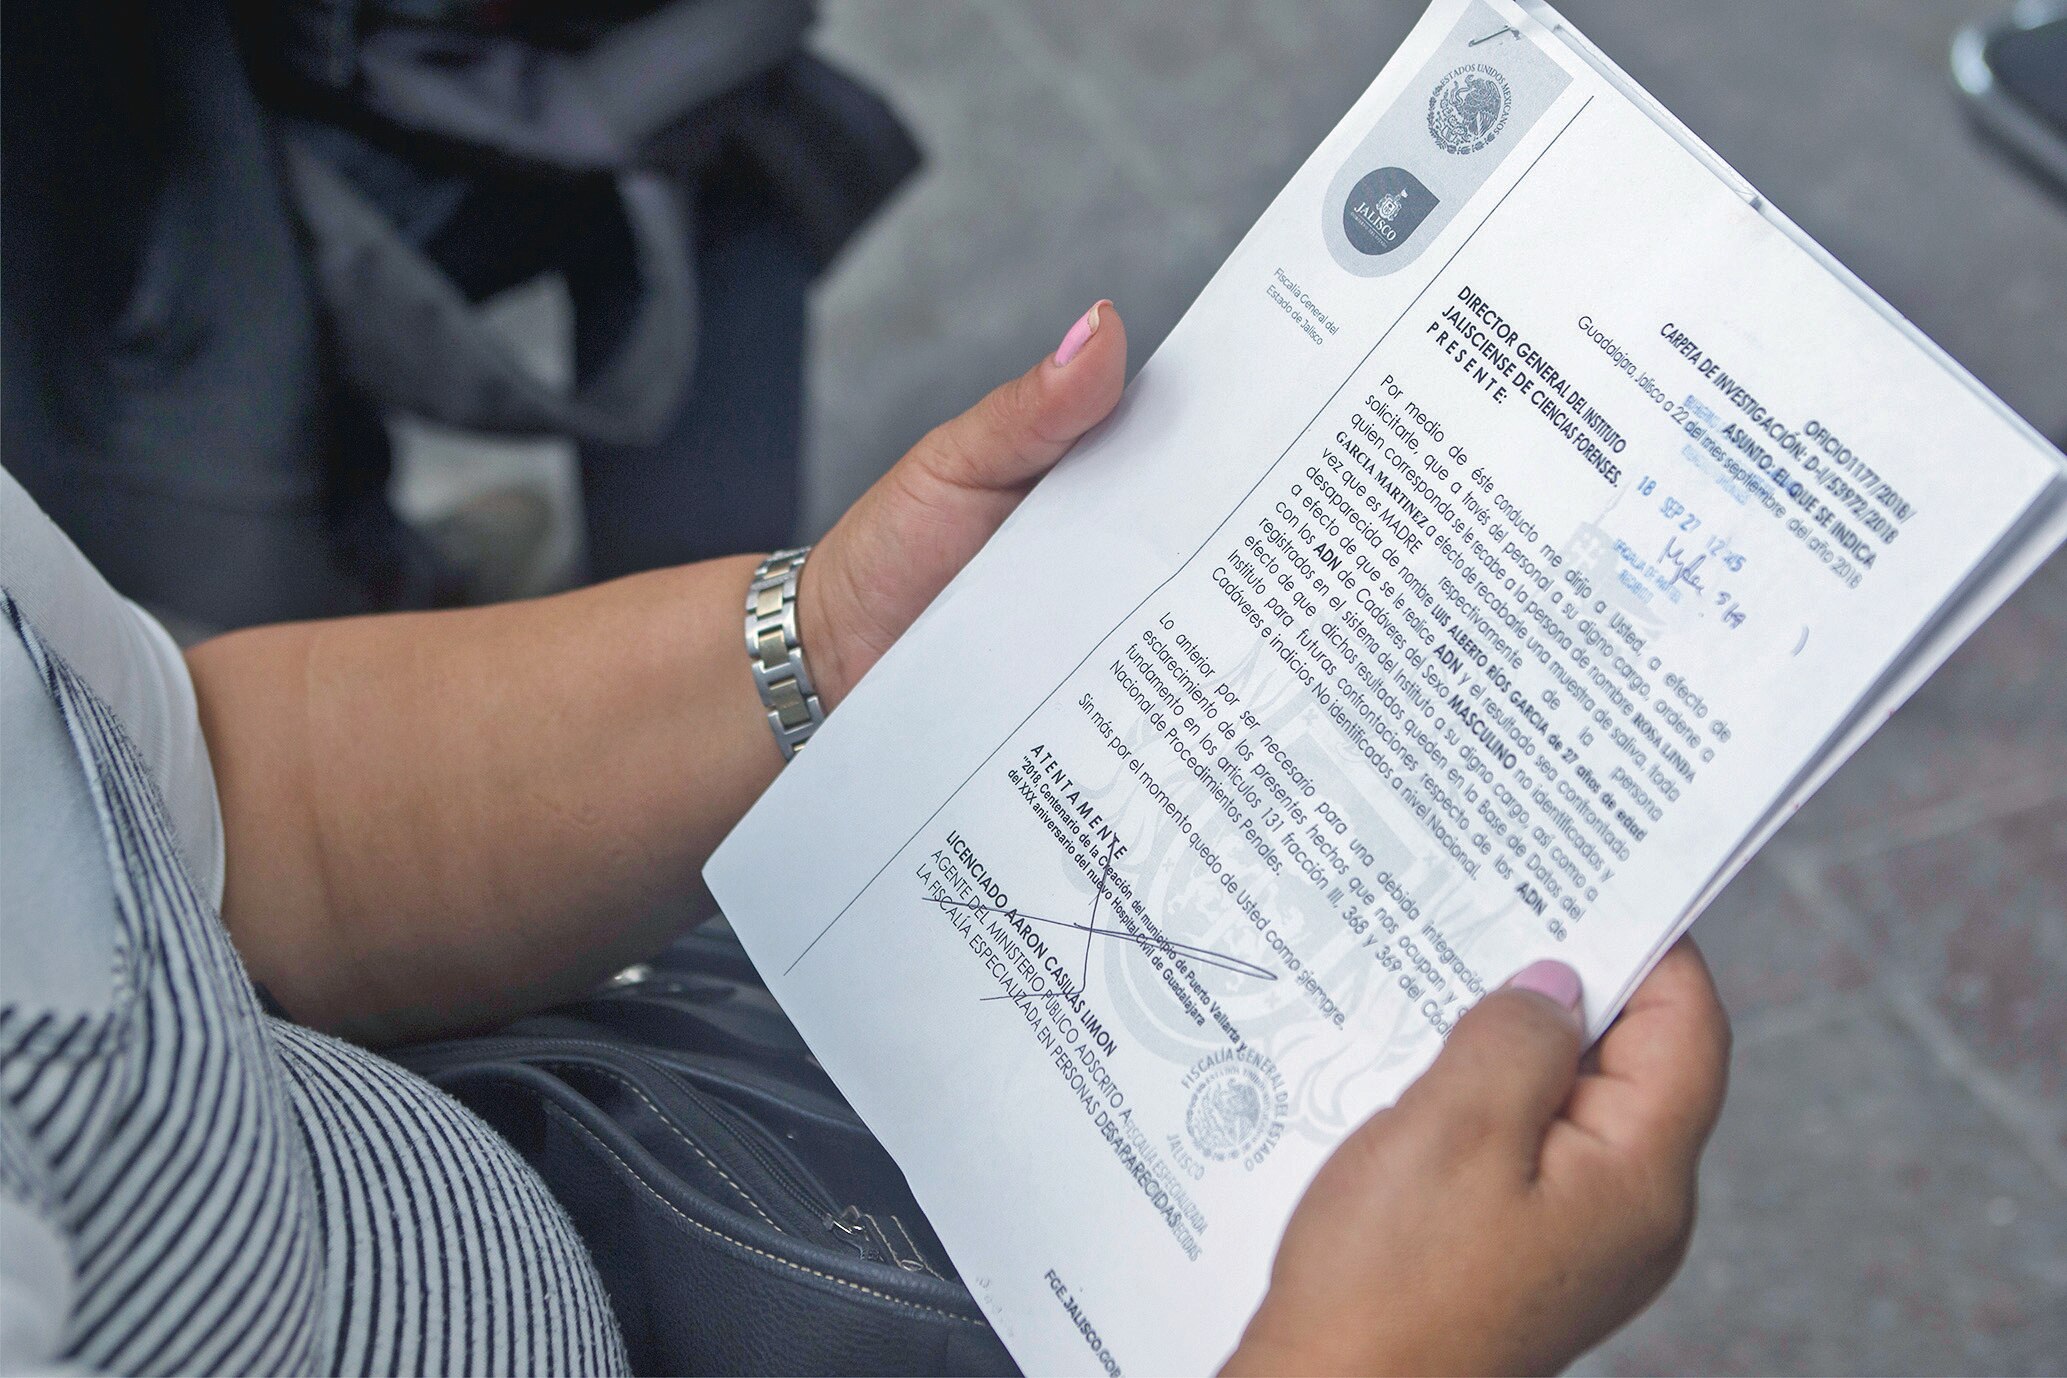 ESTADOS UNIDOS MEXICANOS
JALISCO
Fiscalía General del
Estado de Jalisco
OFICIO1177/2018/
CARPETA DE INVESTIGACIÓN: D-I/53972/2018
ASUNTO: EL QUE SE INDICA
Guadalajara, Jalisco a 22 del mes septiembre del año 2018
DIRECTOR GENERAL DEL INSTITUTO
JALISCIENSE DE CIENCIAS FORENSES.
P R E S E N T E:
18 SEP 27 12:45
Por medio de éste conducto me dirijo a Usted, a efecto de
solicitarle, que a través del personal a su digno cargo, ordene a
quien corresponda se le recabe a la persona de nombre ROSA LINDA
GARCIA MARTINEZ a efecto de recabarle una muestra de saliva, toda
vez que es MADRE respectivamente de la persona
desaparecida de nombre LUIS ALBERTO RÍOS GARCIA de 27 años de edad
a efecto de que se le realice ADN y el resultado sea confrontado
con los ADN de Cadáveres del Sexo MASCULINO no identificados y
registrados en el sistema del Instituto a su digno cargo, así como a
efecto de que dichos resultados queden en la Base de Datos del
Instituto para futuras confrontaciones respecto de los ADN de
Cadáveres e indicios No identificados a nivel Nacional.
Lo anterior por ser necesario para una debida integración
esclarecimiento de los presentes hechos que nos ocupan y
fundamento en los artículos 131 fracción III, 368 y 369 del
Nacional de Procedimientos Penales.
Sin más por el momento quedo de Usted como siempre.
A T E N T A M E N T E
"2018, Centenario de la Creación del municipio de Puerto Vallarta y
del XXX aniversario del nuevo Hospital Civil de Guadalajara
LICENCIADO AARON CASILLAS LIMON
AGENTE DEL MINISTERIO PÚBLICO ADSCRITO A
LA FISCALÍA ESPECIALIZADA EN PERSONAS DESAPARECIDAS
FISCALÍA GENERAL DEL ESTADO
JALISCO
FISCALÍA ESPECIALIZADA
FGE.JALISCO.GOB